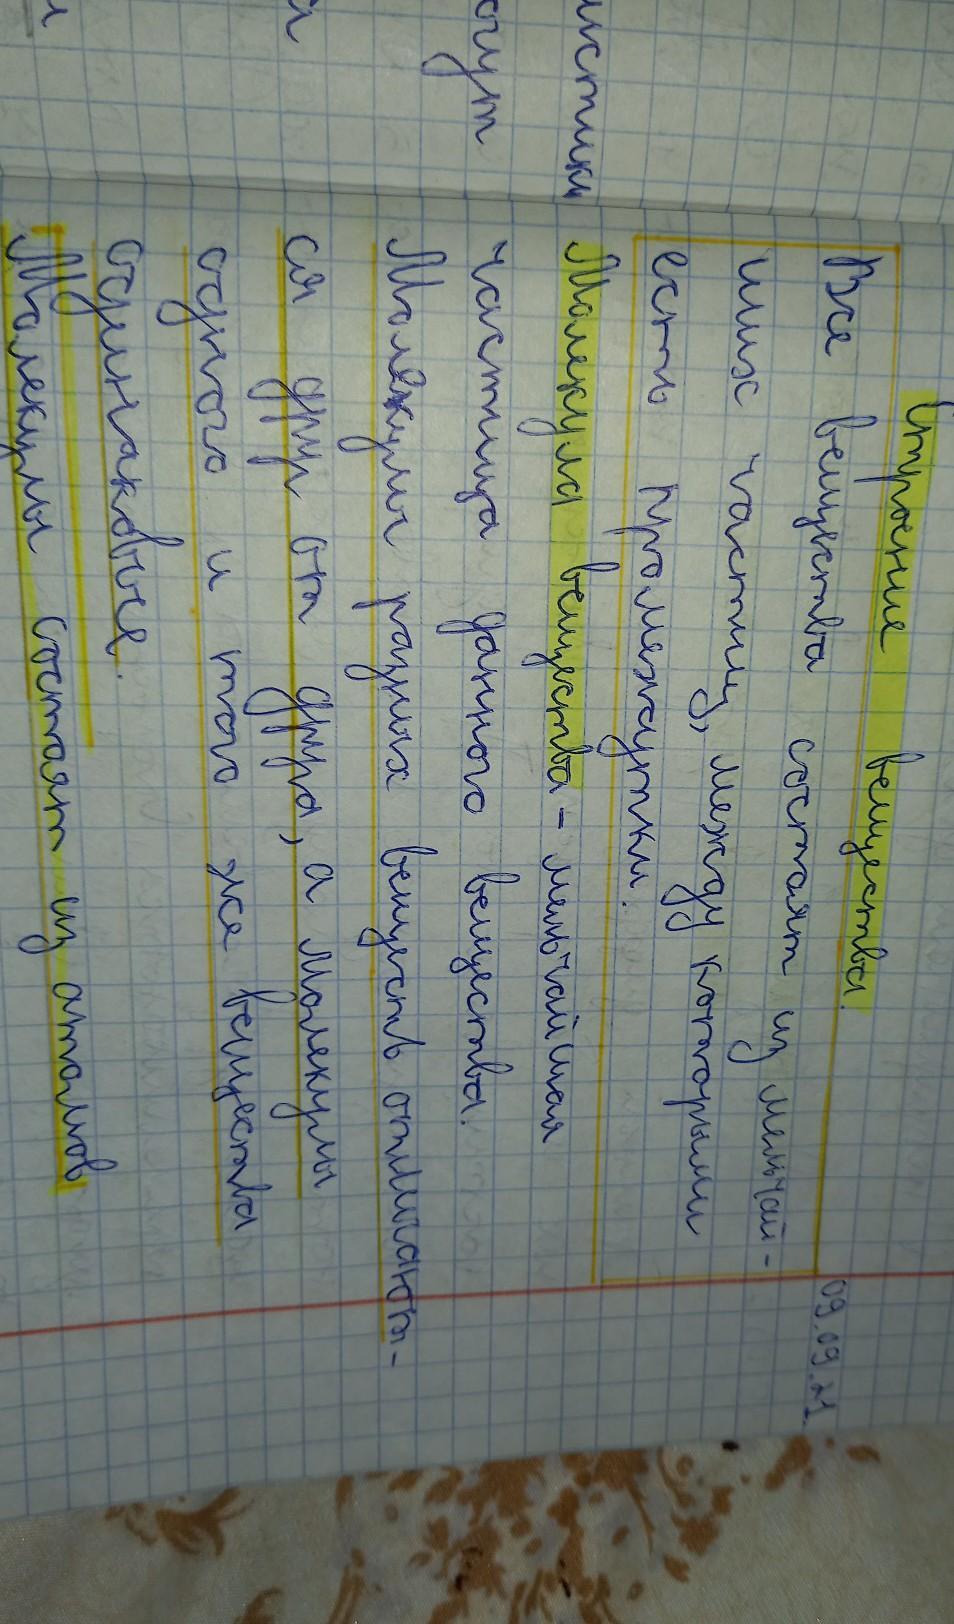 09.09.21
Строение вещества.
Все вещества состоят из мельчай-
ших частиц, между которыми
есть промежутки.
Молекула вещества - мельчайшая
частица данного вещества.
Молекулы разных веществ отличают-
ся друг от друга, а молекулы
одного и того же вещества
одинаковые.
Молекулы состоят из атомов